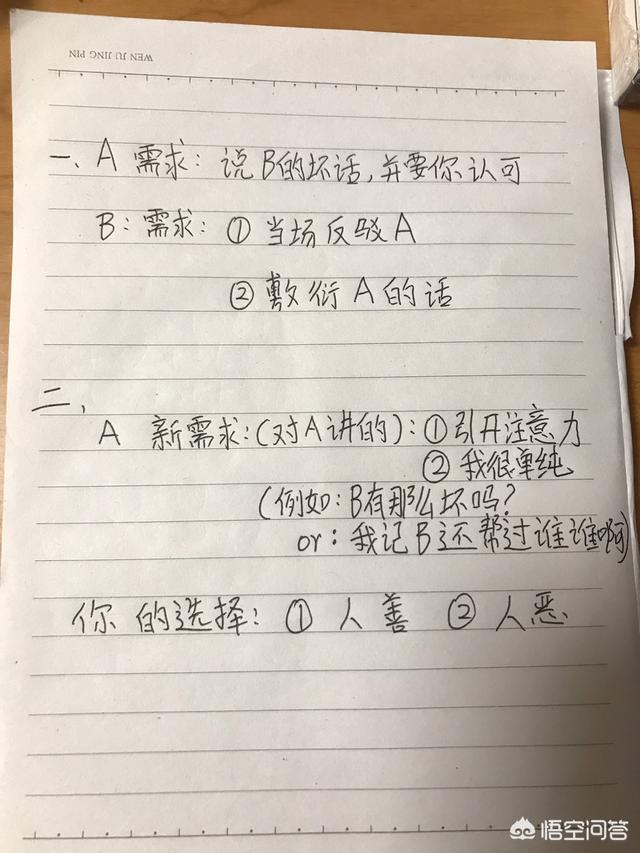 WEN JU JING PIN
一、A 需求：说B的坏话，并要你认可
B：需求：① 当场反驳A
② 敷衍A的话
二、
A 新需求：(对A讲的)：①引开注意力
② 我很单纯
(例如：B有那么坏吗？
or：我记B还帮过谁谁啊)
你的选择：① 人善 ② 人恶
悟空问答